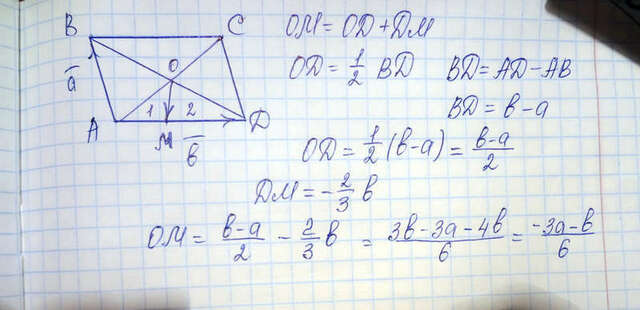 B C
O
a̅
1 2
A M D
b̅
OM = OD + DM
OD = 1/2 BD BD = AD - AB
BD = b - a
OD = 1/2 (b-a) = (b-a)/2
DM = - 2/3 b
OM = (b-a)/2 - 2/3 b = (3b-3a-4b)/6 = (-3a-b)/6